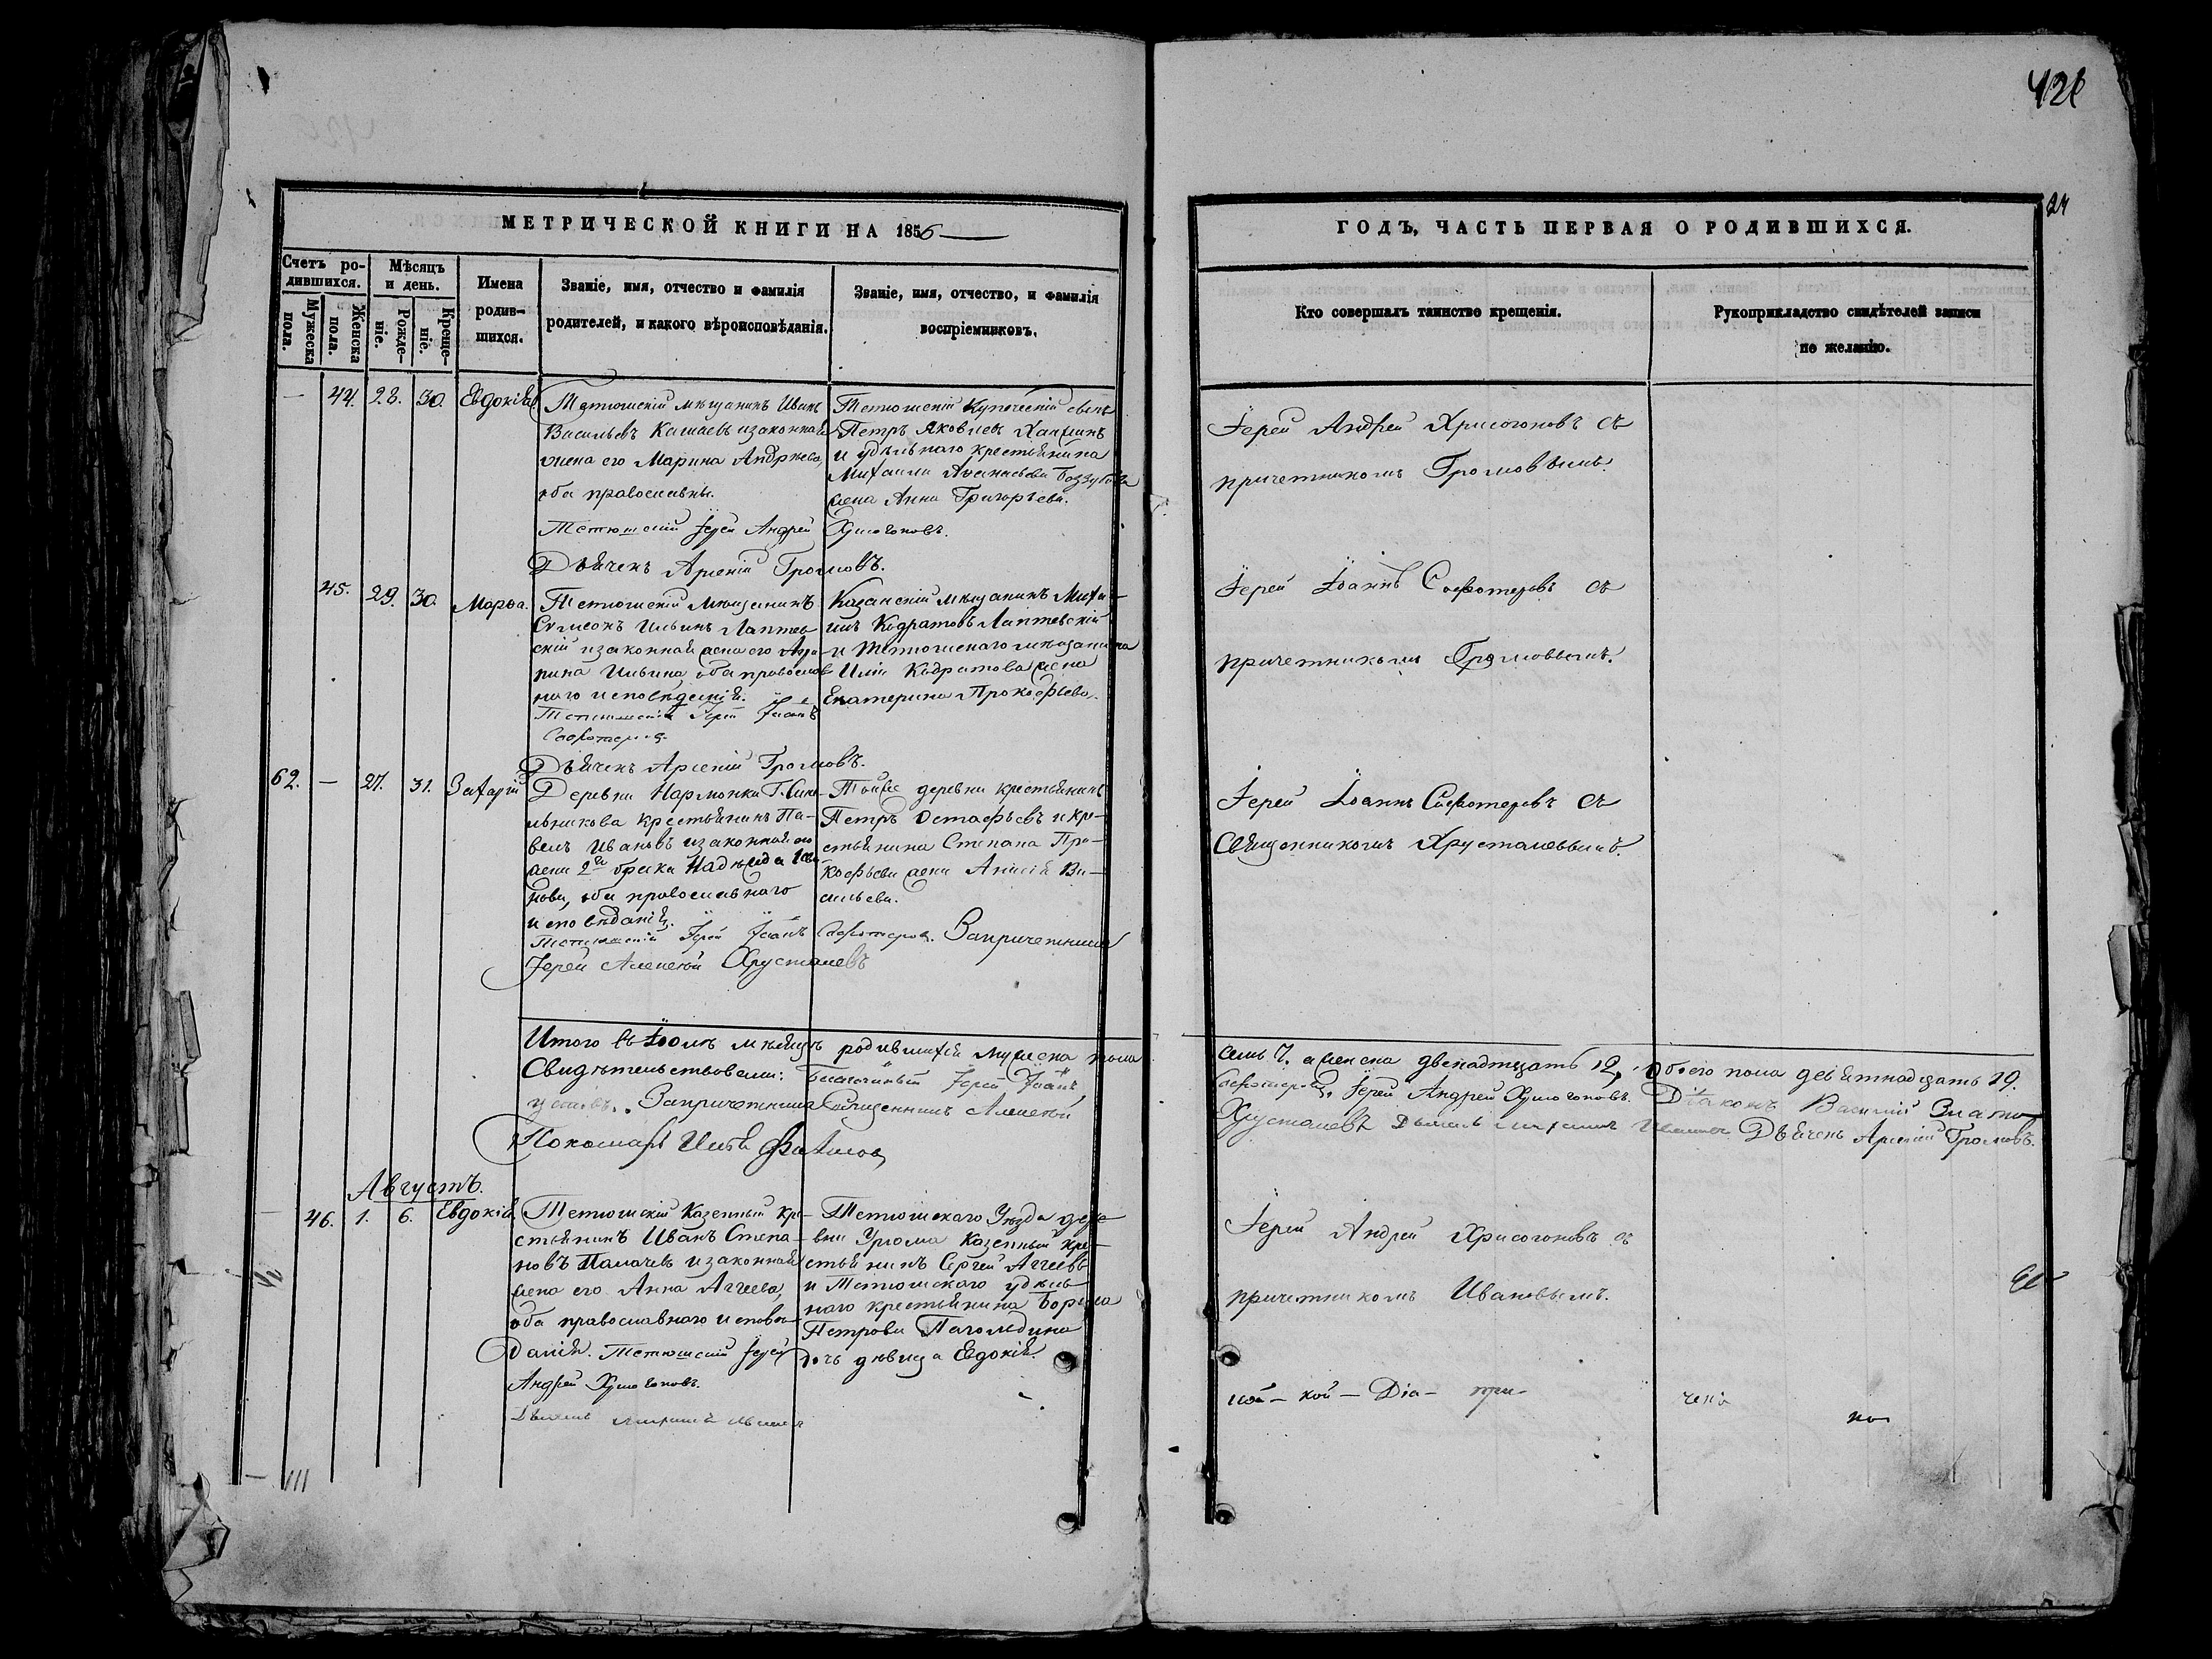 426
24
МЕТРИЧЕСКОЙ КНИГИ НА 1856
ГОДЪ, ЧАСТЬ ПЕРВАЯ О РОДИВШИХСЯ.
Счетъ ро-
дившихся.
Мужеска
пола.
Женска
пола.
Мѣсяцъ
и день.
Рожде-
ніе.
Креще-
ніе.
Имена
родив-
шихся.
Званіе, имя, отчество и фамилія
родителей, и какого вѣроисповѣданія.
Званіе, имя, отчество, и фамилія
воспріемниковъ.
Кто совершалъ таинство крещенія.
Рукоприкладство свидѣтелей записи
по желанію.
— 44. 28. 30. Евдокія
Тетюшскій мѣщанинъ Иванъ
Васильевъ изаконная
жена его Марина Андрѣева,
оба православны.
Тетюшскій Іерей Андрей Хрисогоновъ.
Дьячекъ Арсеній Громовъ.
Тетюшскій Купеческій сынъ
Петръ Яковлевъ
и удѣльнаго крестьянина
Михаила
жена Анна Григорьева.
Іерей Андрей Хрисогоновъ съ
причетникомъ Громовымъ.
45. 29. 30. Марѳа.
Тетюшскій Мѣщанинъ
Сѵмеонъ Ильинъ Лаптев
скій изаконная жена его Агри-
пина Ильина оба православ
наго исповѣданія.
Тетюшскій Іерей Іоаннъ
Дьячекъ Арсеній Громовъ.
Казанскій мѣщанинъ Миха-
илъ Кодратовъ Лаптевскій
и Тетюшскаго мѣщанина
Ильи Кодратова жена
Екатерина Прокофьева.
Іерей Іоаннъ Софотеровъ съ
причетникомъ Громовымъ.
62. — 27. 31. Захарій
Деревни Нармонки
крестьянинъ Па-
велъ Ивановъ изаконная его
жена 2го брака Надежда
оба православнаго
исповѣданія.
Тетюшскій Іерей Іоаннъ Софотеровъ. Запричетника
Іерей Алексѣй Хрусталевъ
Тойже деревни крестьянинъ
Петръ Остафьевъ и кре-
стьянина Степана Про-
кофьева жена Анисія Ва-
сильева.
Іерей Іоаннъ Софотеровъ съ
Священникомъ Хрусталевымъ.
Итого въ Іюлѣ мѣсяцѣ родившихся мужеска пола
семь 7. а женска двенадтцать 12, обоего пола девятнадцать 19.
Свидѣтельствовали: Благочинный Іерей Іоаннъ
Софотеровъ, Іерей Андрей Хрисогоновъ. Діаконъ Василій Злато
устовъ. Запричетника Священникъ Алексѣй
Хрусталевъ Дьячекъ Арсеній Громовъ.
Пономарь
Августъ.
— 46. 1. 6. Евдокія
Тетюшскій Казенный кре-
стьянинъ Иванъ Степа-
новъ Палачевъ изаконная
жена его Анна Аггеева,
оба православнаго исповѣ-
данія. Тетюшскій Іерей
Андрей Хрисогоновъ.
Тетюшскаго Уѣзда дере-
вни Урюма Казенный кре-
стьянинъ Сергей Аггеевъ
и Тетюшскаго удѣль-
наго крестьянина Бориса
Петрова
дочь дѣвица Евдокія.
Іерей Андрей Хрисогоновъ съ
причетникомъ Ивановымъ.
ной — кой — Діа — при-